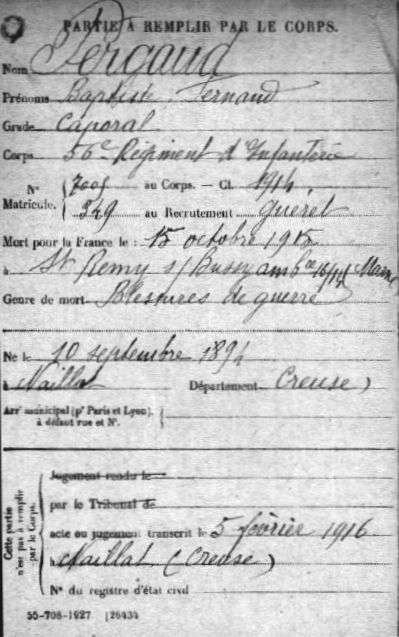 PARTIE À REMPLIR PAR LE CORPS.
Nom Pergaud
Prénoms Baptiste Fernand
Grade Caporal
Corps 56e Régiment d'Infanterie
N° 7005 au Corps. — Cl. 1914
Matricule. 349 au Recrutement Guéret
Mort pour la France le : 15 octobre 1915
à St Remy s/ Bussy amb ce 16/14 Marne
Genre de mort Blessures de guerre
Né le 10 septembre 1894
à Naillat Département Creuse)
Arrt municipal (pr Paris et Lyon),
à défaut rue et N°.
Cette partie
n'est pas à remplir
par le Corps.
Jugement rendu le
par le Tribunal de
acte ou jugement transcrit le 5 février 1916
à Naillat (Creuse)
N° du registre d'état civil
55-708-1927 [26434